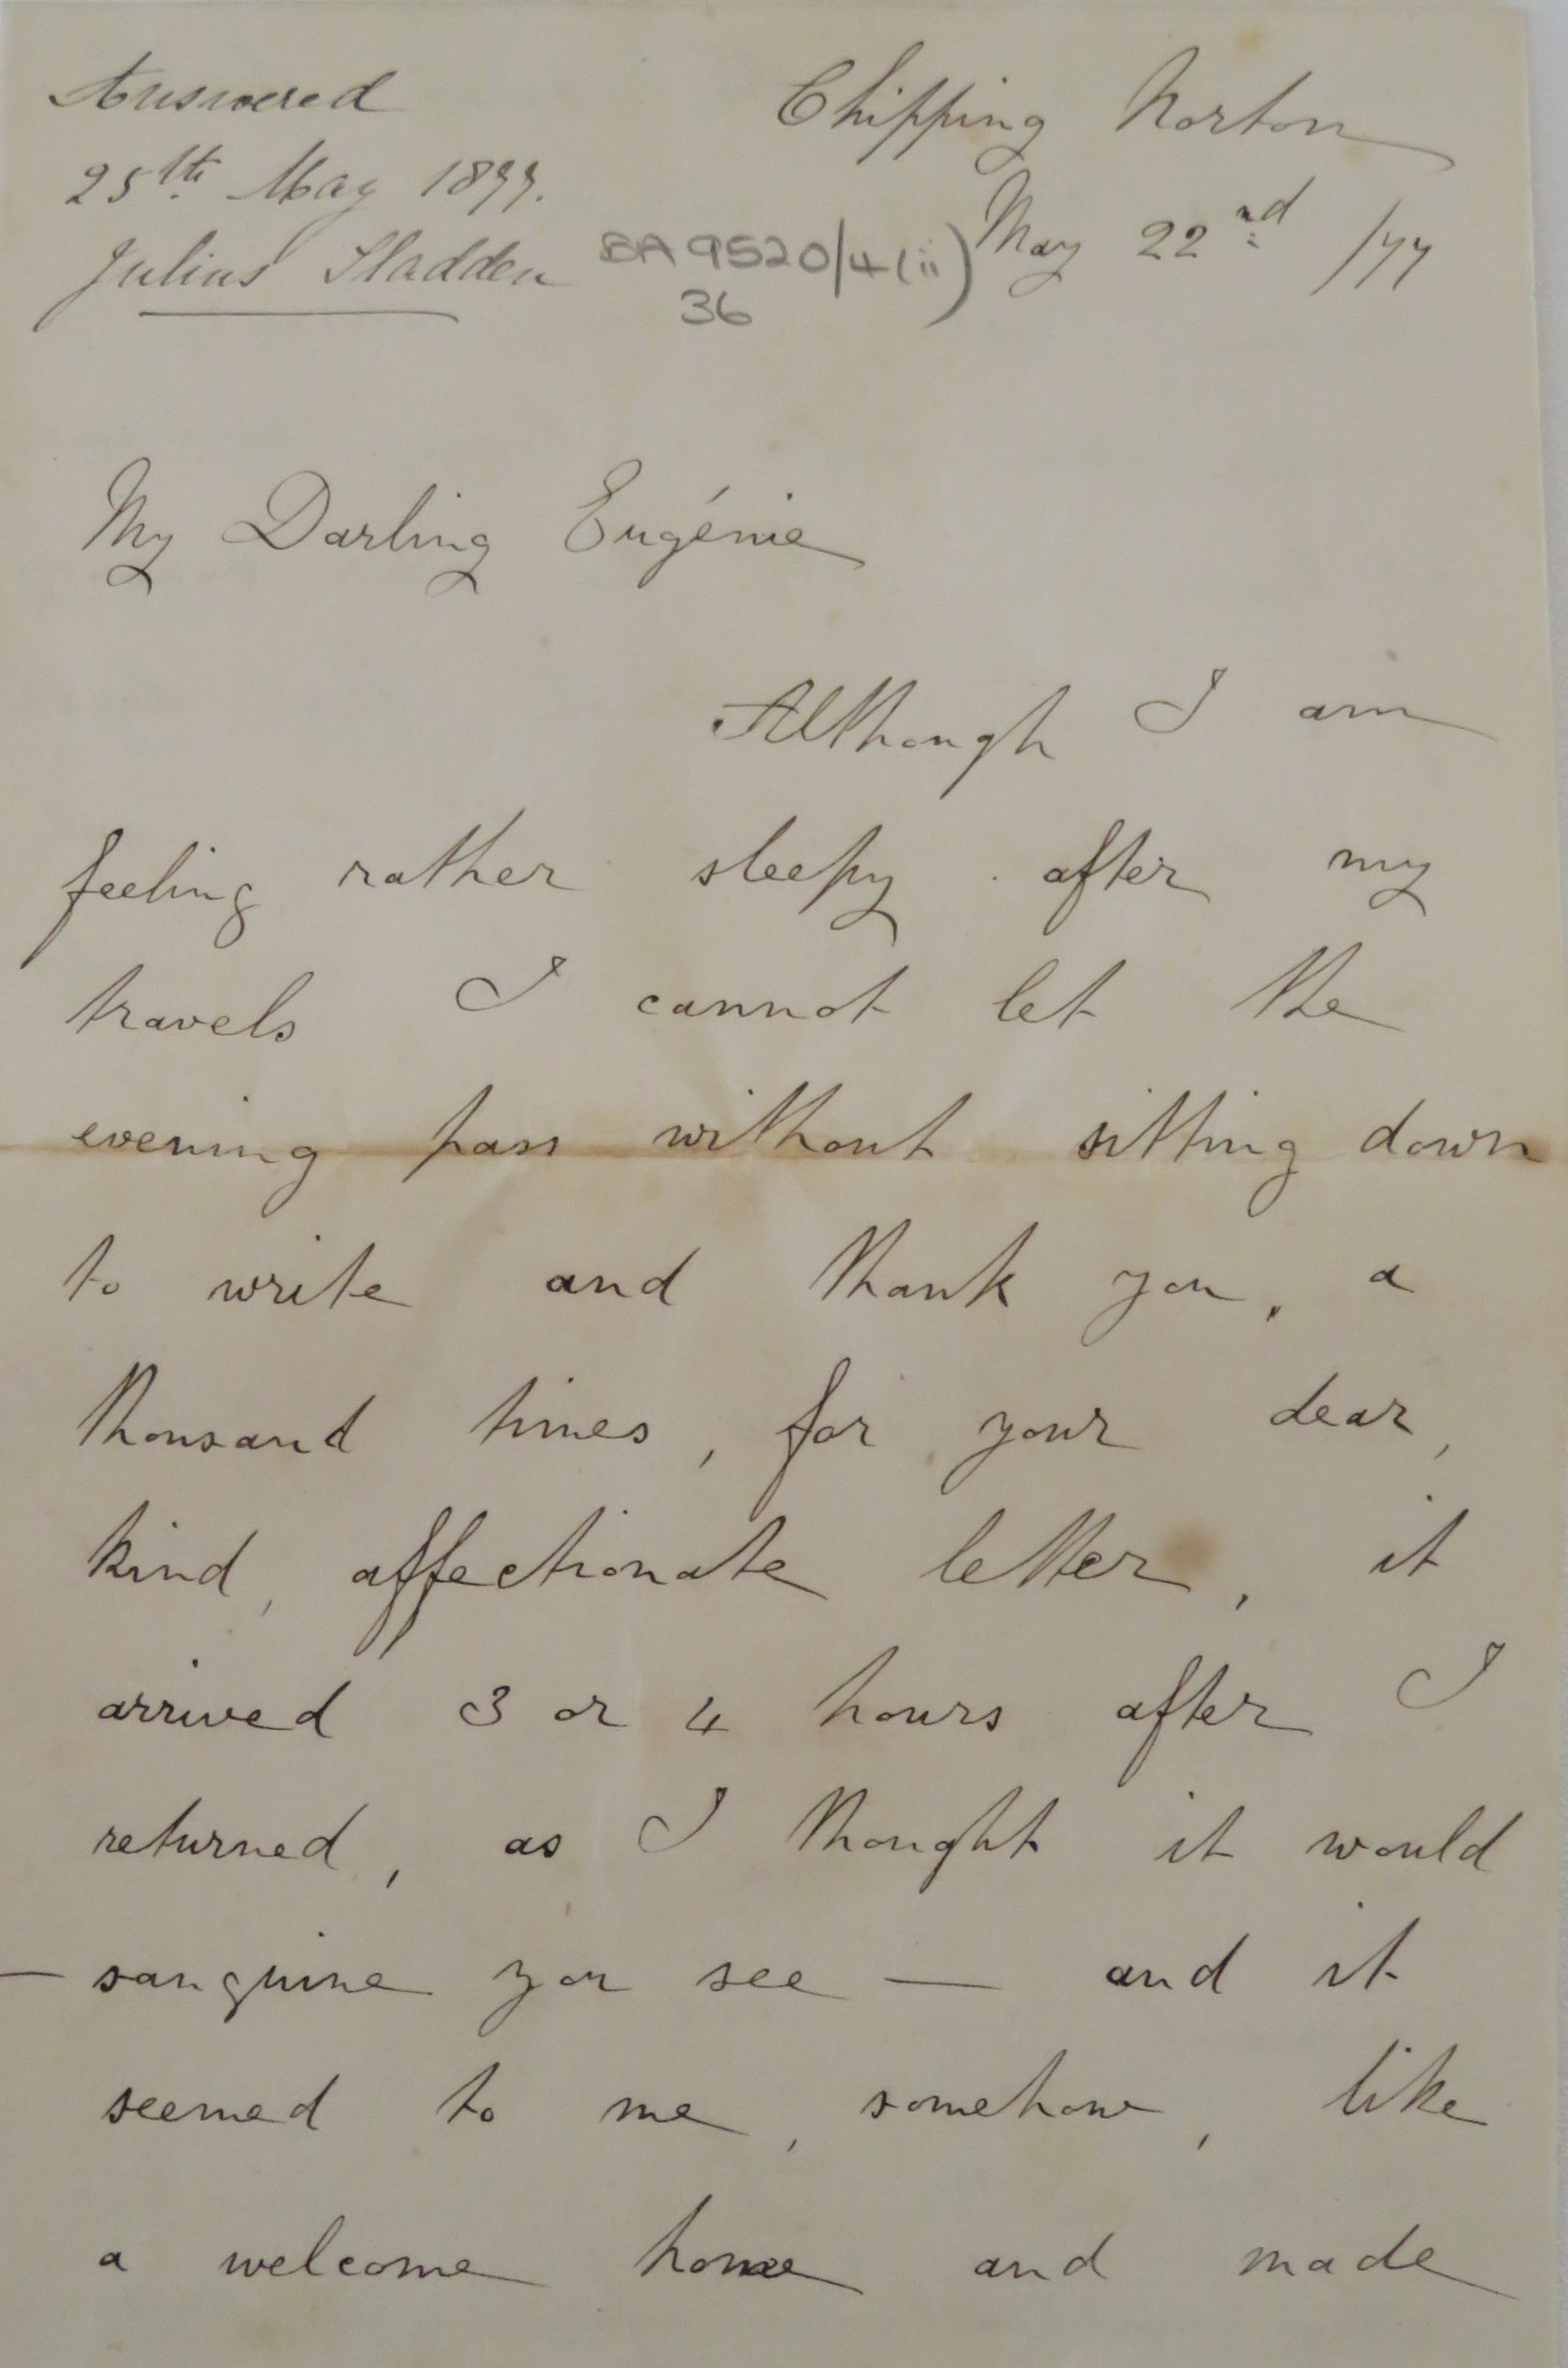 Answered
25th. May 1877.
Julius Sladden
Chipping Norton
May 22nd /77
BA 9520/4(ii)
36
My Darling Eugénie
Although I am
feeling rather sleepy after my
travels I cannot let the
evening pass without sitting down
to write and thank you, a
thousand times, for your dear,
kind, affectionate letter, it
arrived 3 or 4 hours after I
returned, as I thought it would
— sanguine you see — and it
seemed to me, somehow, like
a welcome home and made